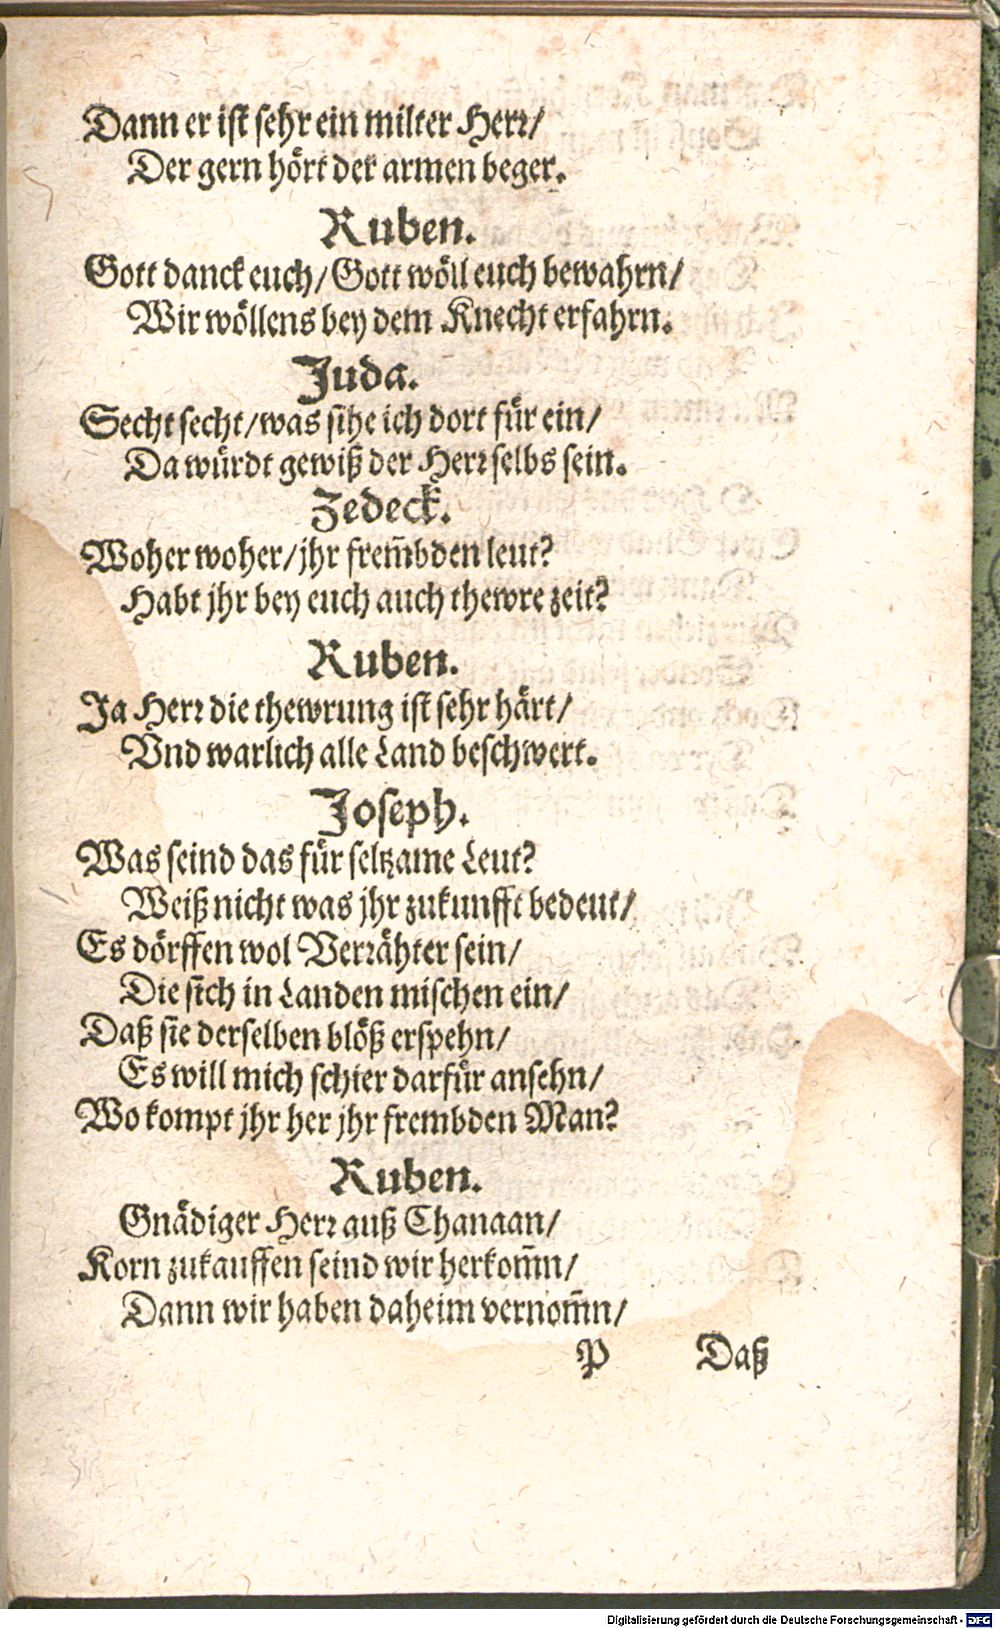 Dann er ist sehr ein milter Herr/
Der gern hört der armen beger.
Ruben.
Gott danck euch/ Gott wöll euch bewahrn/
Wir wöllens bey dem Knecht erfahrn.
Juda.
Secht secht/ was sihe ich dort für ein/
Da würdt gewiß der Herr selbs sein.
Zedeck.
Woher woher/ jhr frem̃bden leut?
Habt jhr bey euch auch thewre zeit?
Ruben.
Ja Herr die thewrung ist sehr härt/
Vnd warlich alle Land beschwert.
Joseph.
Was seind das für seltzame Leut?
Weiß nicht was jhr zukunfft bedeut/
Es dörffen wol Verrähter sein/
Die sich in Landen mischen ein/
Daß sie derselben blöß erspehn/
Es will mich schier darfür ansehn/
Wo kompt jhr her jhr frembden Man?
Ruben.
Gnädiger Herr auß Chanaan/
Korn zukauffen seind wir herkom̃n/
Dann wir haben daheim vernom̃n/
P Daß
Digitalisierung gefördert durch die Deutsche Forschungsgemeinschaft - DFG